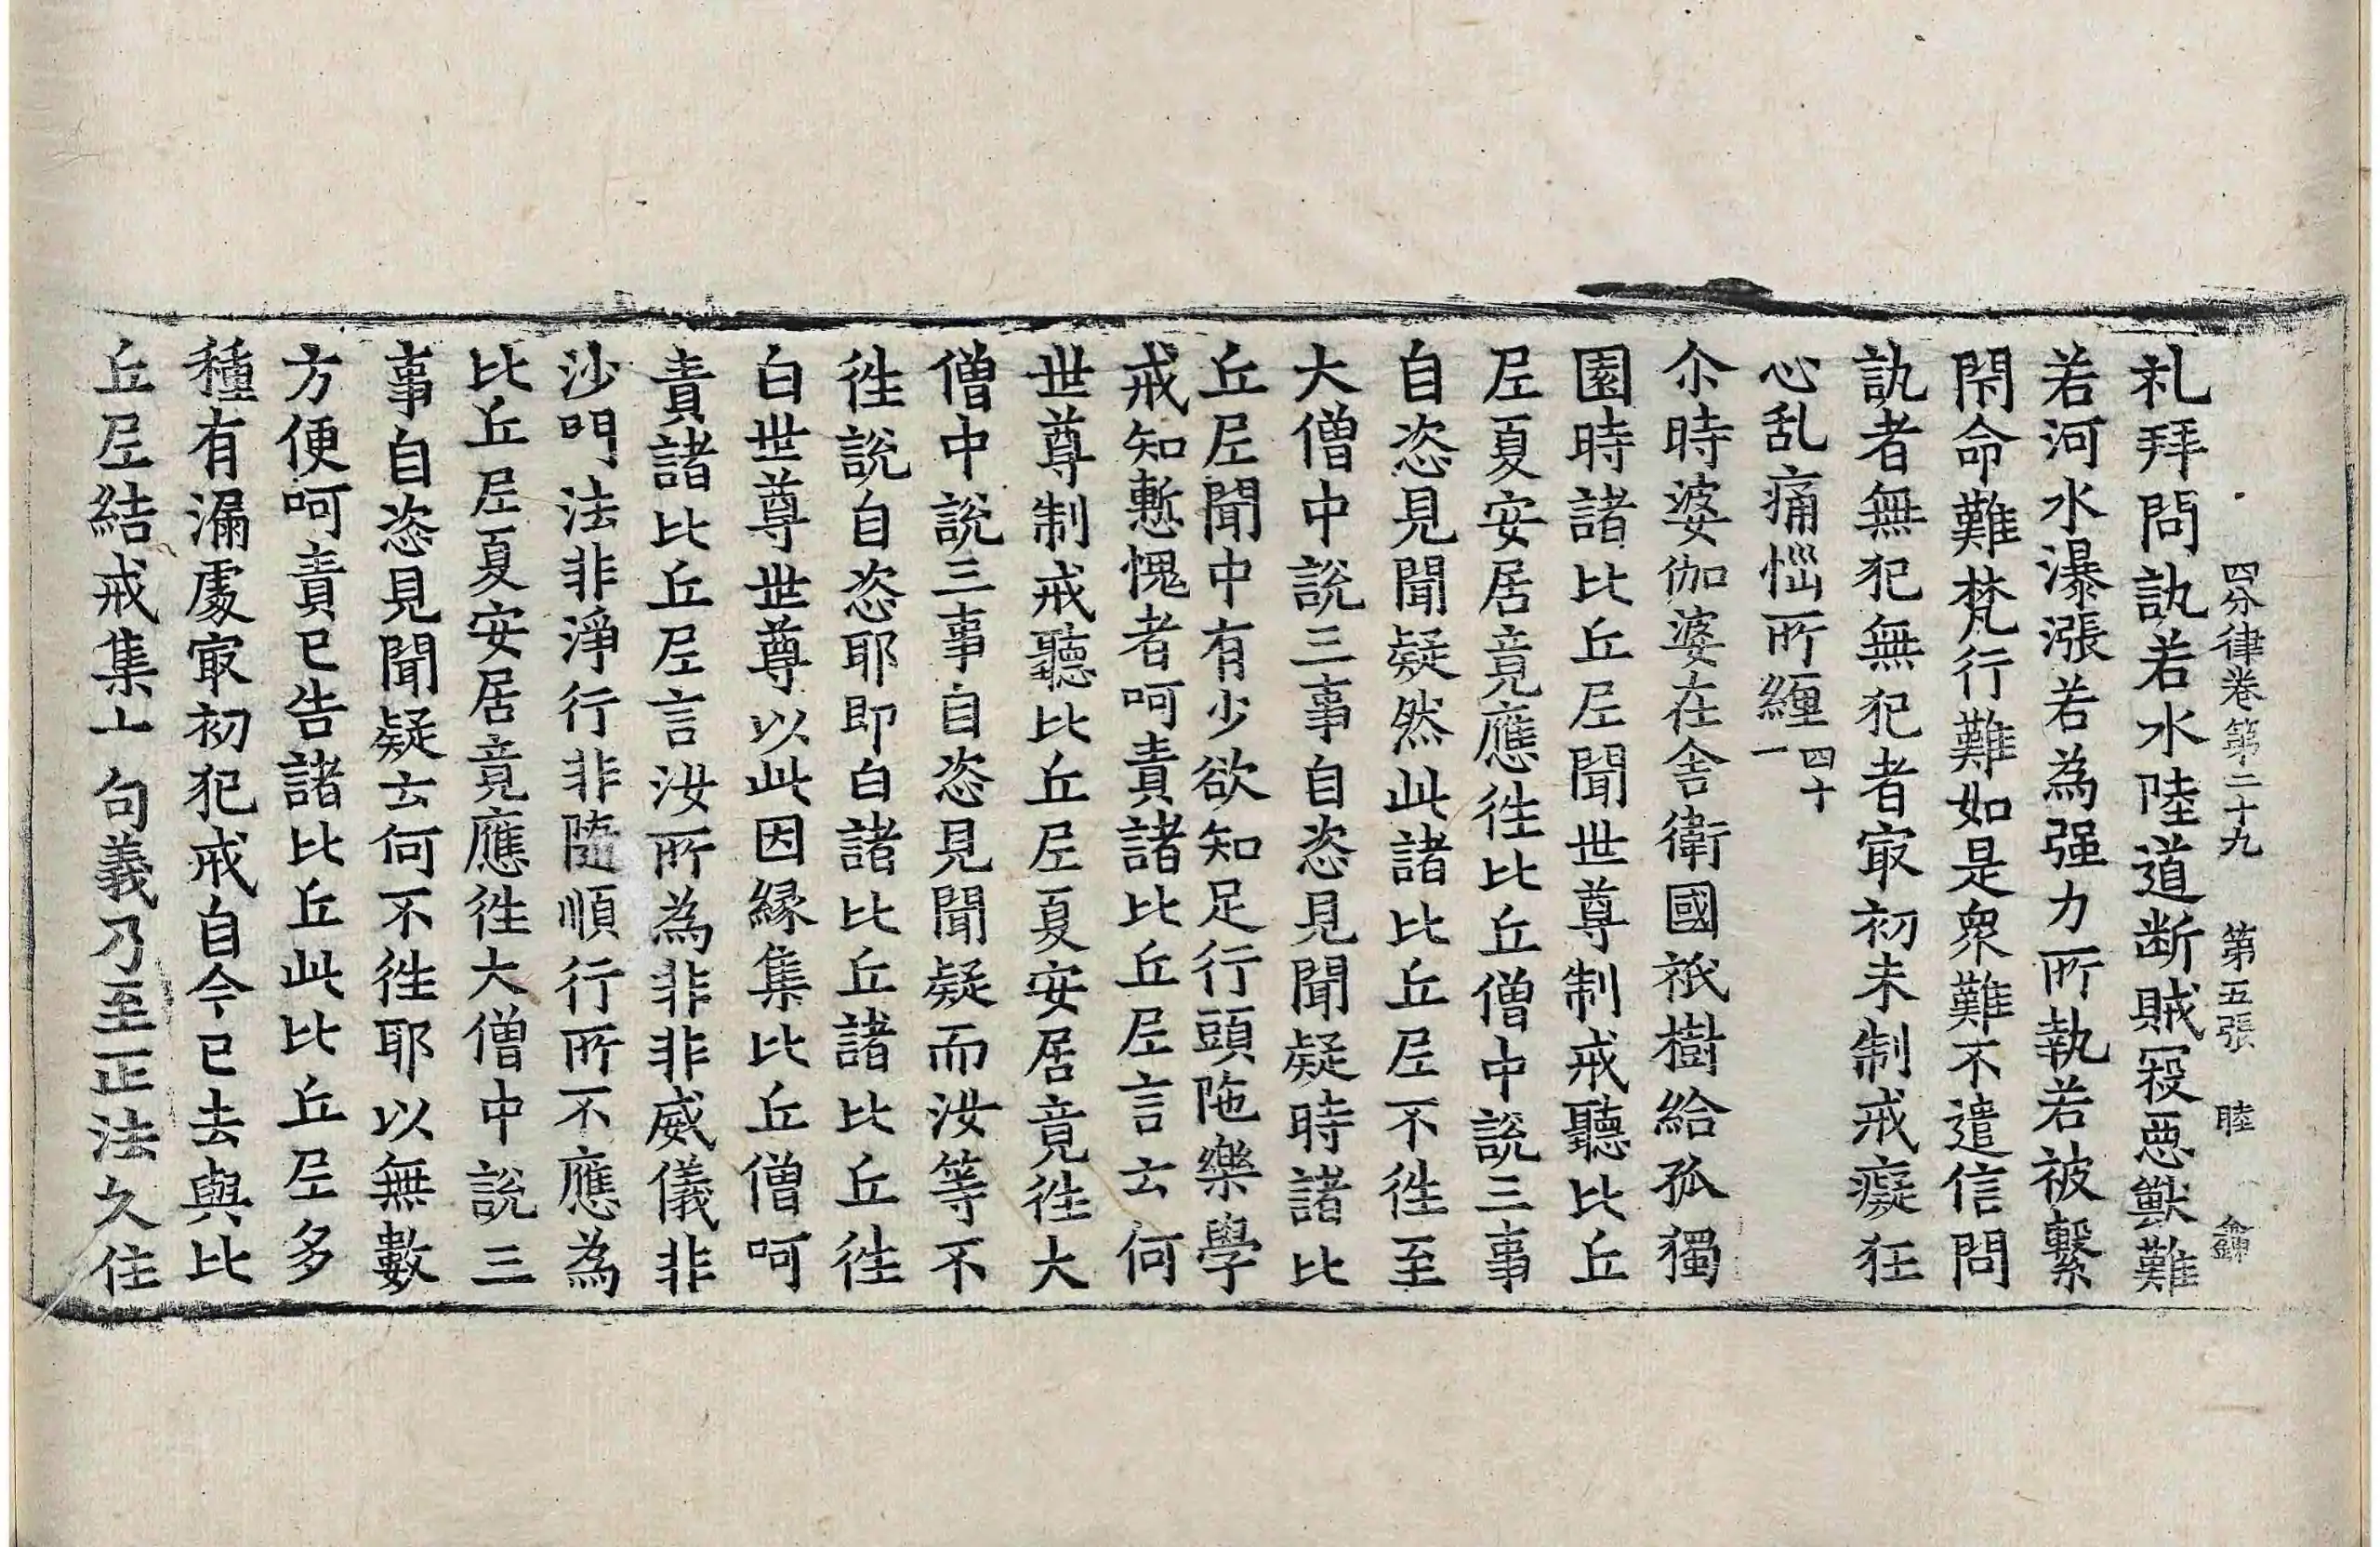 四分律卷第二十九　第五張　睦
礼拜問訊若水陸道断賊冦惡獸難
若河水瀑漲若為强力所執若被繫
閇命難梵行難如是衆難不遣信問
訊者無犯無犯者㝡初未制戒癡狂
心乱痛惱所纏四十一
尒時婆伽婆在舍衛國祇樹給孤獨
園時諸比丘尼聞世尊制戒聽比丘
尼夏安居竟應徃比丘僧中說三事
自恣見聞疑然此諸比丘尼不徃至
大僧中說三事自恣見聞疑時諸比
丘尼聞中有少欲知足行頭陁樂學
戒知慙愧者呵責諸比丘尼言云何
世尊制戒聽比丘尼夏安居竟徃大
僧中說三事自恣見聞疑而汝等不
徃說自恣耶即白諸比丘諸比丘徃
白世尊世尊以此因縁集比丘僧呵
責諸比丘尼言汝所為非非威儀非
沙門法非淨行非隨順行所不應為
比丘尼夏安居竟應徃大僧中說三
事自恣見聞疑云何不徃耶以無數
方便呵責已告諸比丘此比丘尼多
種有漏處㝡初犯戒自今已去與比
丘尼結戒集十句義乃至正法久住